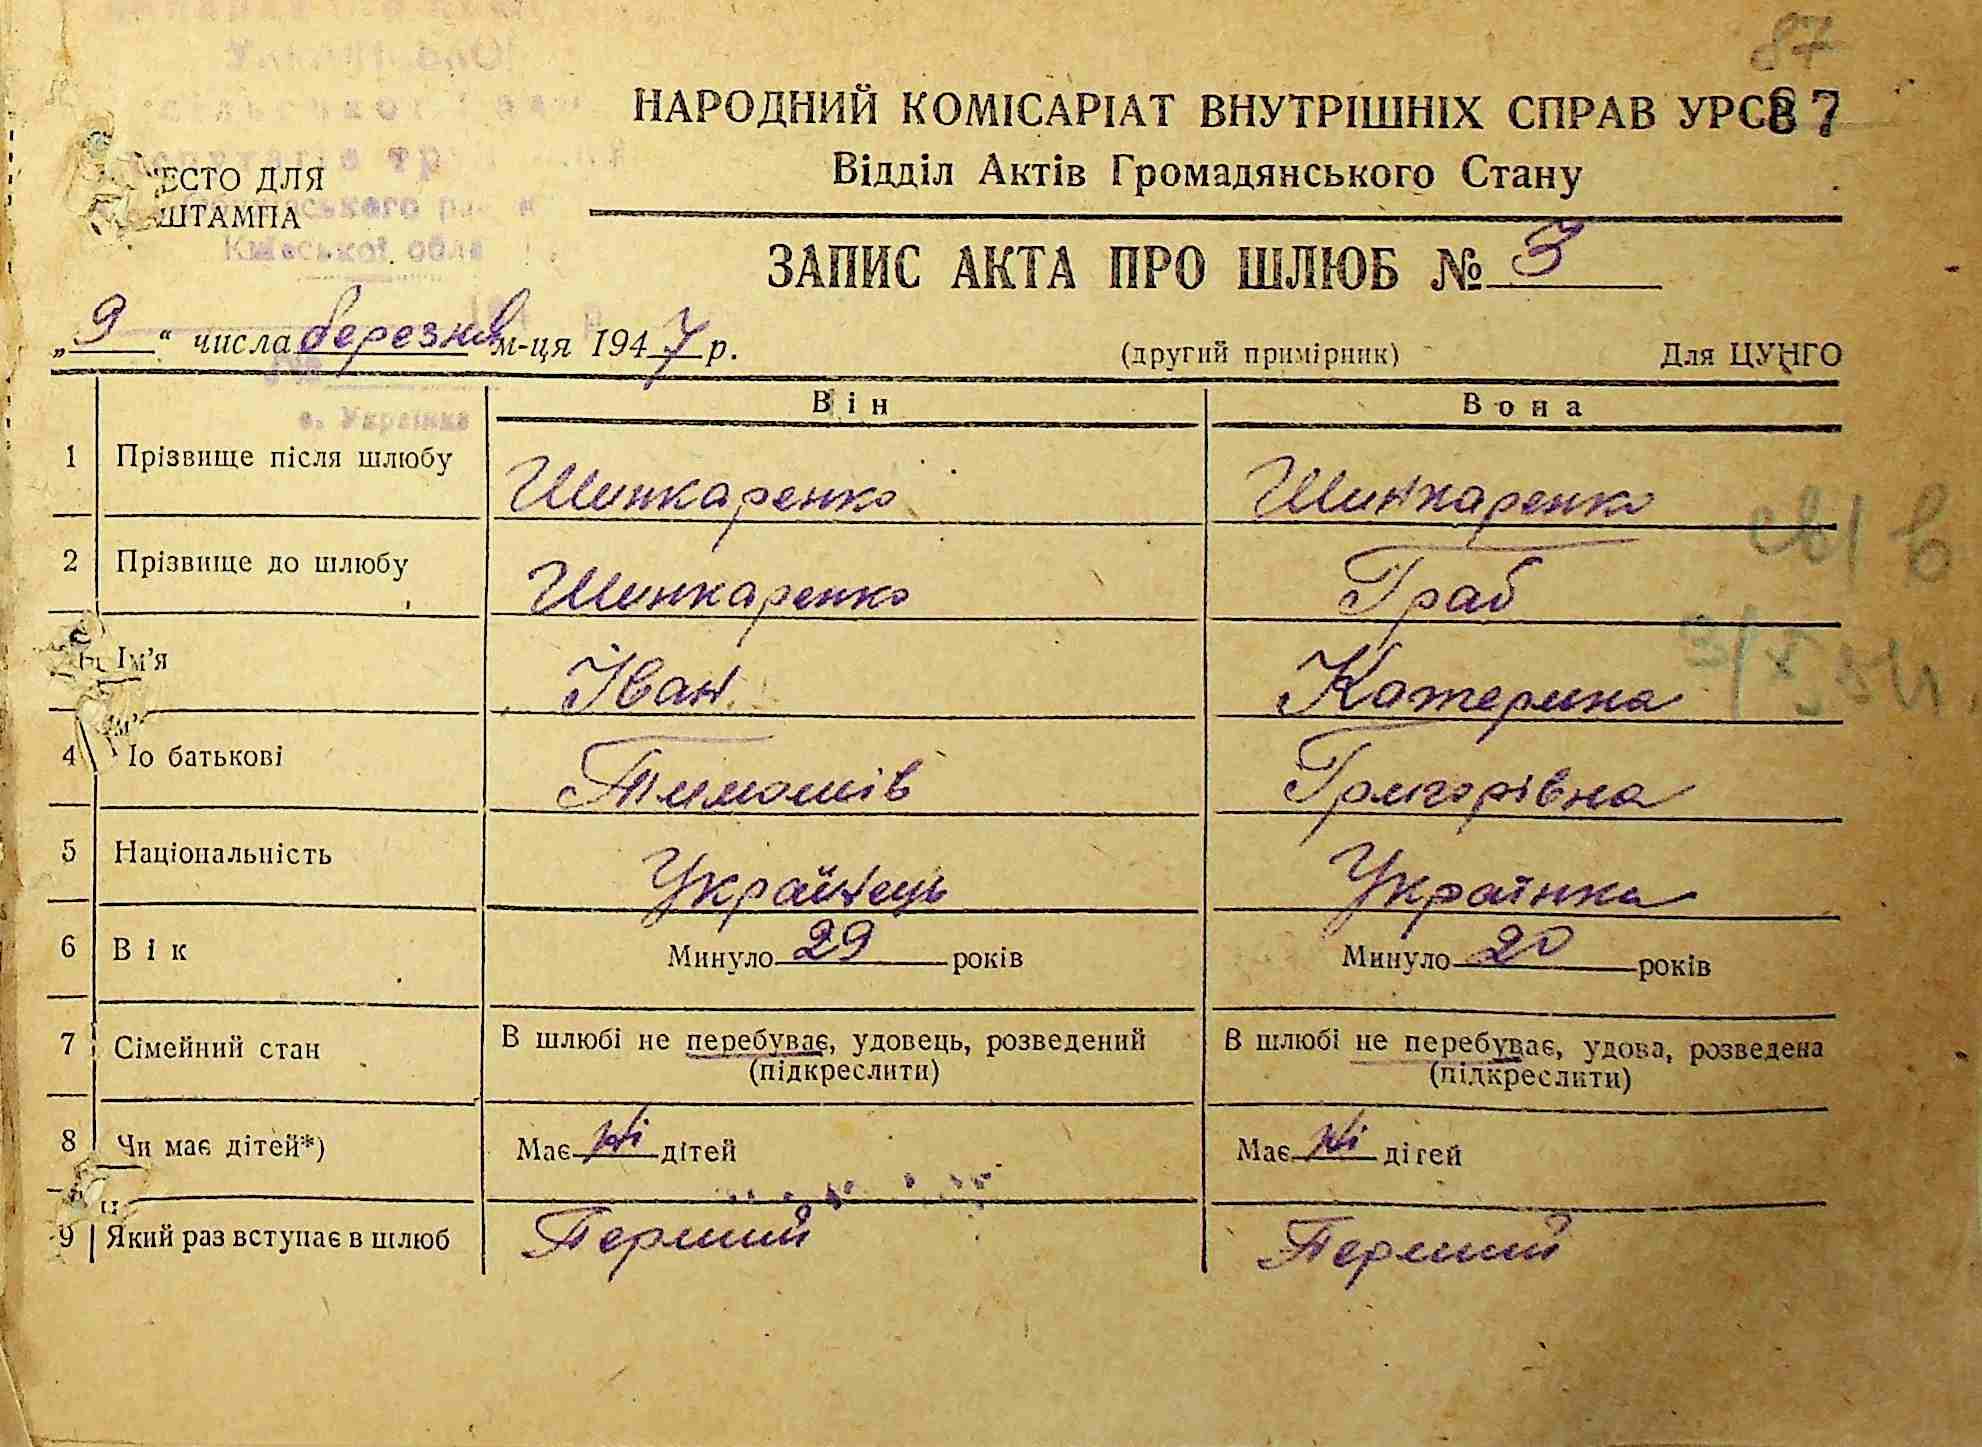 87
НАРОДНИЙ КОМІСАРІАТ ВНУТРІШНІХ СПРАВ УРСР 87
Відділ Актів Громадянського Стану
ЕСТО ДЛЯ
ШТАМПА
Київської обл
с. Українка
ЗАПИС АКТА ПРО ШЛЮБ № 3
„9“ числа березня м-ця 1947 р. (другий примірник) Для ЦУНГО
Він Вона
1 Прізвище після шлюбу Шинкаренко Шинкаренко
2 Прізвище до шлюбу Шинкаренко Граб
Ім'я Іван Катерина
4 По батькові Тимошів Григорівна
5 Національність Українець Українка
6 Вік Минуло 29 років Минуло 20 років
7 Сімейний стан В шлюбі не перебуває, удовець, розведений В шлюбі не перебуває, удова, розведена
(підкреслити) (підкреслити)
8 Чи має дітей*) Має ні дітей Має ні дітей
9 Який раз вступає в шлюб Перший Перший